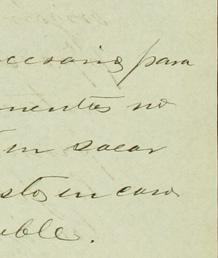 cesario para
mentras no
en sacar
sto, en caso
uble.